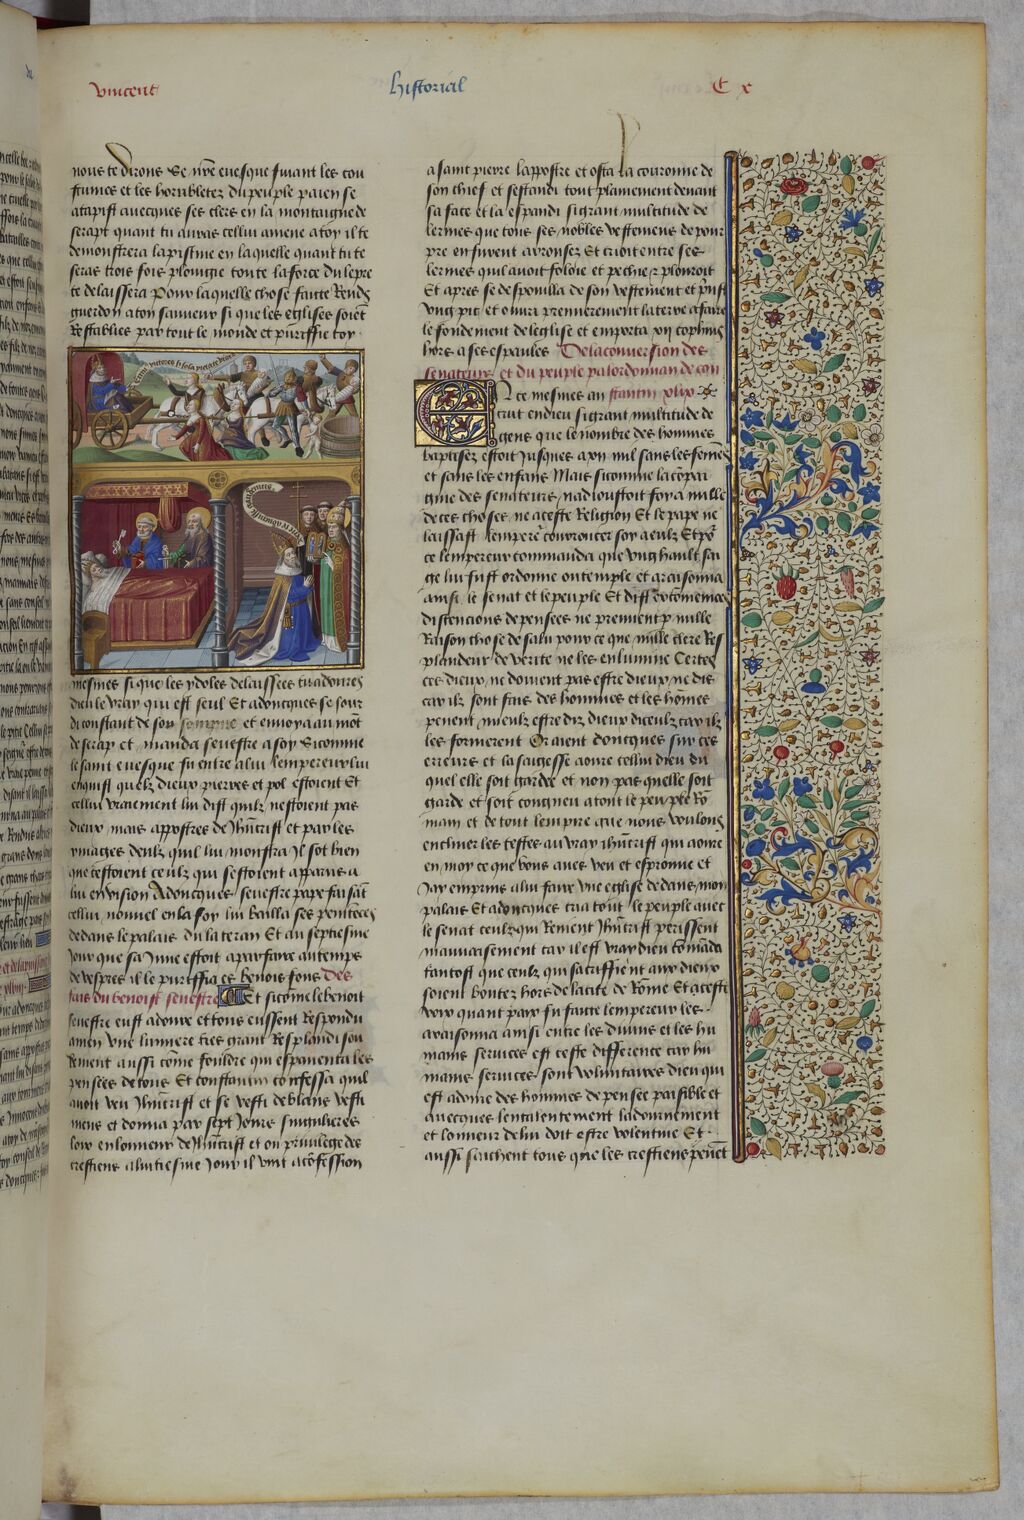 vincent
historial
C x
nous te dirons Se nre euesque fuiant les cou
stumes et les horribletez du peuple paien se
atapist auecques ses clers en la montaigne de
serapt quant tu auras cellui amene a toy il te
demonstrera la piscine en laquelle quant tu te
seras trois fois plongie toute la force du lepre
te delaissera Pour laquelle chose faitte Rendz
guerdon a ton sauueur si que les eglises soiet
Restablies par tout le monde et purifie toy
mesmes si que les ydoles delaissees tu adores
dieu le vray qui est seul Et adoncques se sour
di constant de son sompne et enuoya au mot
de serap et manda seuestre a soy Si comme
le saint euesque fu entre a lui lempereur lui
enquist quelz dieux pierres et pol estoient Et
cellui vraiement lui dist quilz nestoient pas
dieux mais appostres de Jhucrist et par les
ymages deulz quil lui monstra Jl sot bien
que cestoient ceulz qui sestoient apparus a
lui en vision Adoncques seuestre pape faisat
cellui nouuel en la foy lui bailla ses peniteces
dedans le palais du lateran Et au septiesme
Jour que sa June estoit a parfaire au temps
de vespres il le puriffia es benois fons Des
fais du benoist seuestre Et si come le benoit
seuestre eust adoure et tous eussent Respondu
amen vne lumiere tres grant Resplandi sou
dement aussi come fouldre qui espouenta les
pensees de tous Et constantin confessa quil
auoit veu Jhucrist et se vesti de blans veste
mens et donna par sept Jours singulieres
loix en lonneur de Jhucrist et ou priuilege des
crestiens a luitiesme Jour il vint a cofession
a saint pierre lappostre et osta la couronne de
son chief et sestandi tout plainement deuant
sa face et la espandi si grant multitude de
lermes que tous ses nobles vestemens de pour
pre en furent arrousez Et crioit entre ses
lermes quil auoit foloie et pechie plouroit
Et apres se despouilla de son vestement et
vng pic et ouuri premierement la terre a faire
le fondement de leglise et emporta xij cophins
hors a ses espaules De la conuersion des
senateurs et du peuple par lordonnan de con
En ce mesmes an stantin xlix
crut en dieu si grant multitude de
gens que le nombre des hommes
baptisez estoit Jusques a xij mil sans les femes
et sans les enfans Mais si comme la copai
gnie des senateurs nadioustoit foy a nulle
de ces choses ne a ceste Religion Et le pape ne
laissast lempere couroucer soy a eulz Et po
ce lempereur commanda que vng hault sie
ge lui fust ordonne ou temple et araisonna
ainsi le senat et le peuple Et dist
distencions de pensees ne prennent nulle
Raison chose de salu pour ce que nulle clere Res
plandeur de verite ne les enlumine Certes
ces dieux ne doiuent pas estre dieux ne dis
car ilz sont fais des hommes et les homes
peuent mieulz estre diz dieux diceulz car ilz
les formerent Or aient doncques fin ces
erreurs et la sagesse aoure cellui dieu du
quel elle soit gardee et non pas quelle soit
garde et soit congneu a tout le peuple Ro
main et de tout lempire que nous voulons
encliner les testes au vray Jhucrist qui aoure
en moy ce que vous aues veu et esprouue et
Jay emprins a lui faire vne eglise dedans mon
palais Et adoncques cria tout le peuple auec
le senat ceulz qui Renient Jhucrist perissent
mauuaisement car il est vray dieu comada
tantost que ceulz qui sacriffient aux dieux
soient boutez hors de la cite de Rome Et a ceste
voix quant paix fu faicte lempereur les
araisonna ainsi entre les diuins et les hu
mains seruices est ceste difference car hu
mains seruices sont voluntaires dieu qui
est adoure des hommes de pensee paisible et
auecques lentalentement ladournement
et lonneur de lui doit estre volentine Et
aussi saichent tous que les crestiens peuet